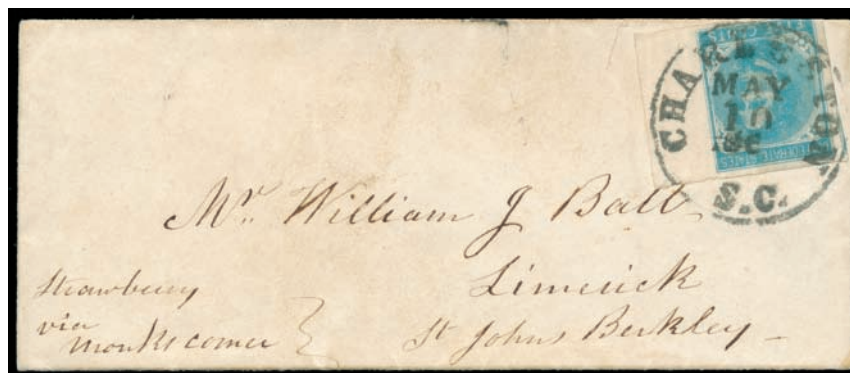 CHARLESTON
MAY
10
S.C.
CENTS
Mr. William J Ball
Limerick
St Johns Berkley
Strawberry
via
Monkscorner